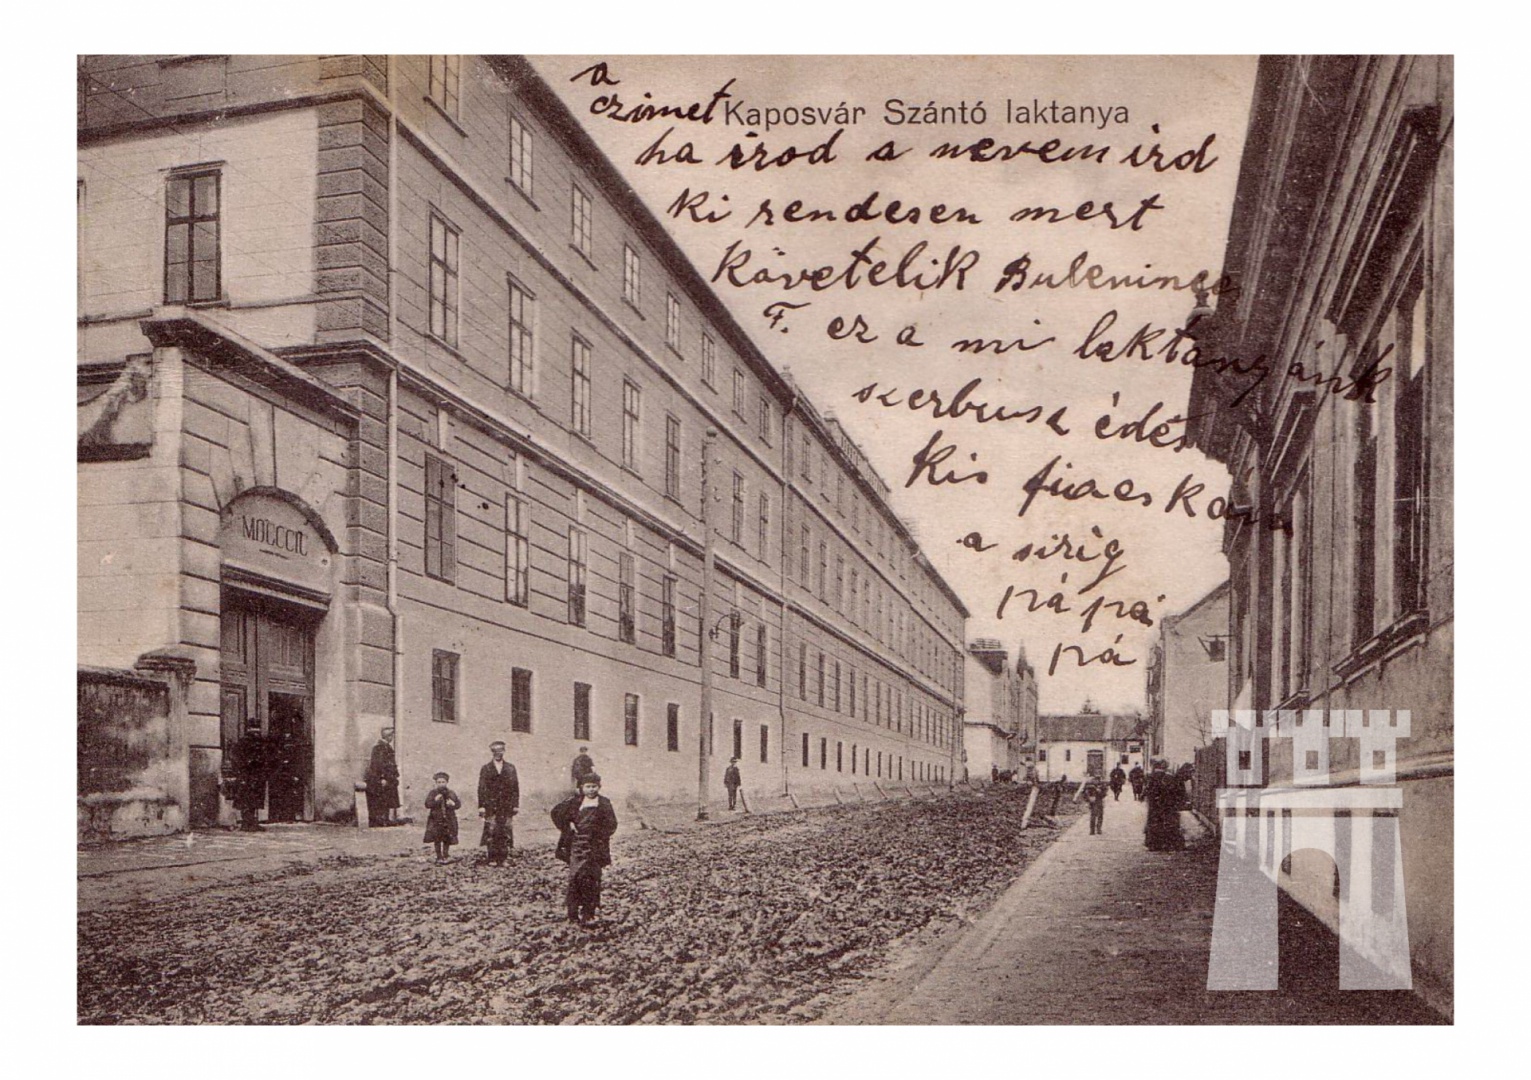 a
czimet Kaposvár Szántó laktanya
ha irod a nevem ird
ki rendesen mert
követelik
F. ez a mi laktanyánk
szerbusz édes
kis fiacskám
a sirig
pá pá
pá